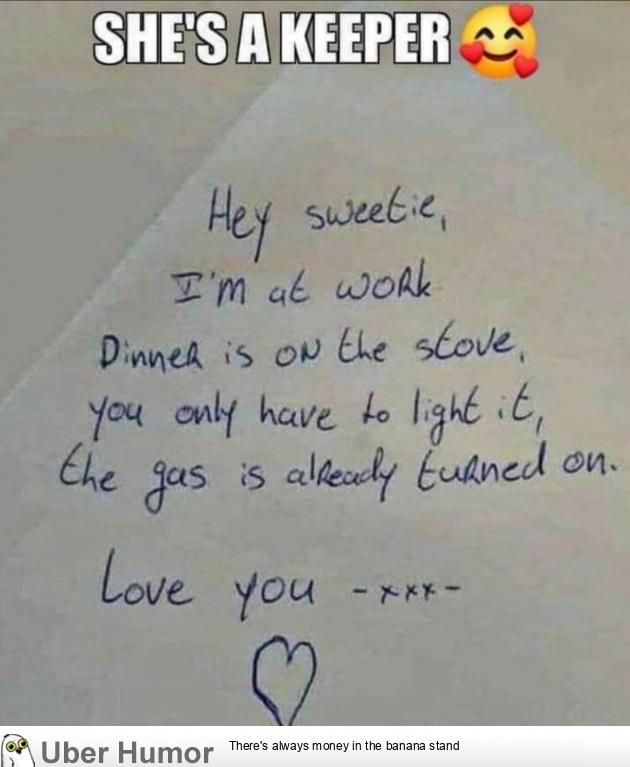 SHE'S A KEEPER
Hey sweetie,
I'm at work
Dinner is on the stove,
you only have to light it,
the gas is already turned on.
Love you -xxx-
Uber Humor
There's always money in the banana stand